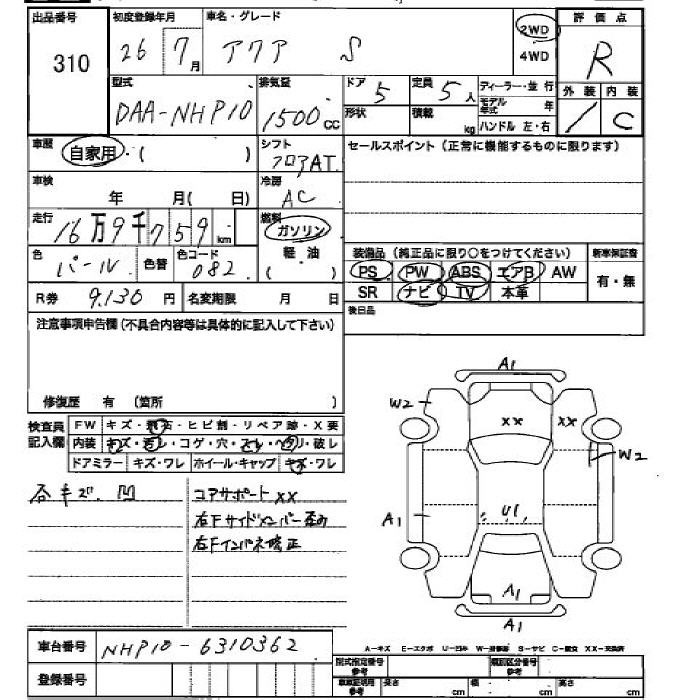 出品番号 初度登録年月 車名・グレード 2WD 4WD 評価点
310 26年 7月 アクア S R
型式 排気量 ドア 定員 ディーラー・並行 外装 内装
DAA-NHP10 1500cc 5 5人 モデル年式 年 / C
形状 積載 kg ハンドル 左・右
車歴 自家用・( ) シフト フロアAT セールスポイント(正常に機能するものに限ります)
車検 年 月( 日) 冷房 AC
走行 16万9千759km 燃料 ガソリン 軽油 ( )
色 パール 色替 色コード 082
装備品(純正品に限り○をつけてください) 新車保証書
PS PW ABS エアB AW 有・無
SR ナビ TV 本革
R券 9,130円 名変期限 月 日
後日品
注意事項申告欄(不具合内容等は具体的に記入して下さい)
修復歴 有 (箇所 )
検査員記入欄 FW キズ・飛石・ヒビ割・リペア跡・X要
内装 キズ・汚レ・コゲ・穴・スレ・ヘタリ・破レ
ドアミラー キズ・ワレ ホイール・キャップ キズ・ワレ
各キズ、凹 コアサポートXX
右Fサイドメンバー歪み
右Fインパネ修正
A1
W2 XX XX
W2
A1 U1
A1
A1
車台番号 NHP10-6310362
登録番号
A-キズ E-エクボ U-凹み W-補修跡 S-サビ C-腐食 XX-交換済
型式指定番号 参考 類別区分番号 参考
車庫証明用 参考 長さ cm 幅 cm 高さ cm